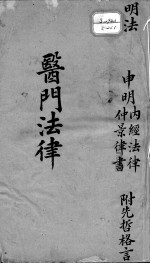 明法
申明內經法律
仲景律書
附先哲格言
醫門法律